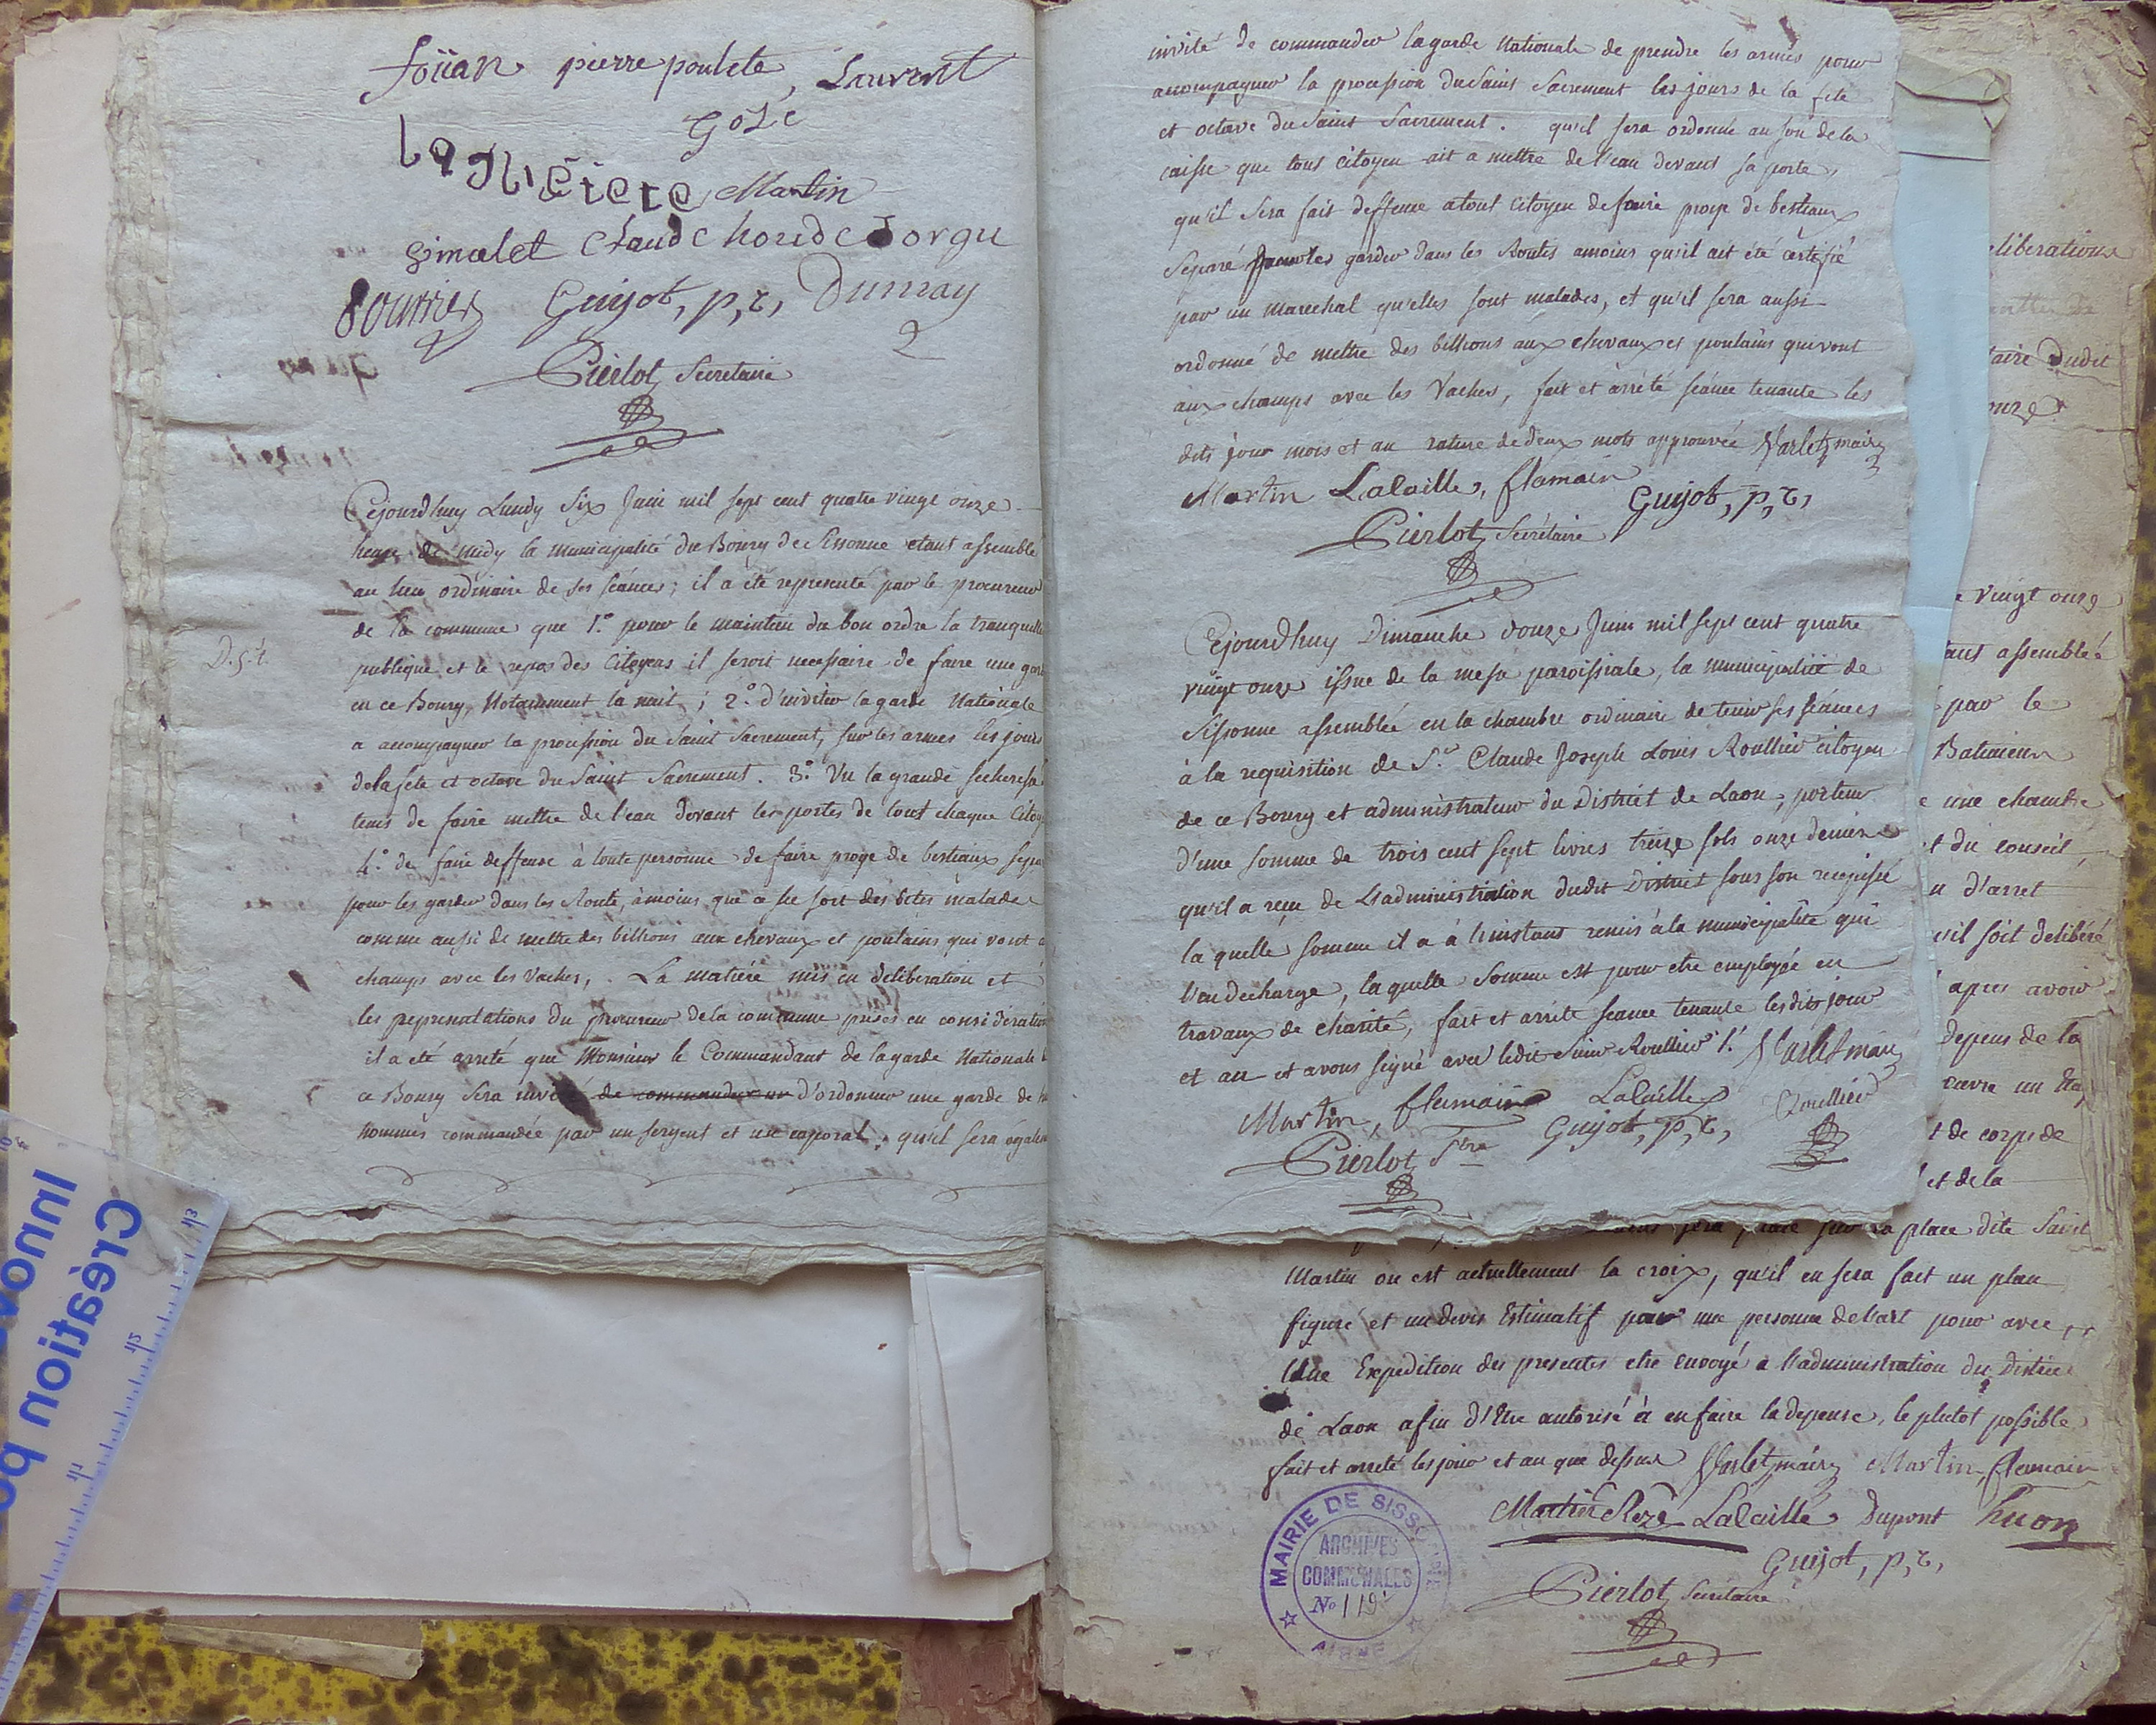 foüan pierre poulete, Laurent
Gozé
Martin
gimalet Claude houde Jorgu
fournier Guyot, p, c, Dumay
Pierlot Secretaire
Cejourdhuy Lundy Six Juin mil sept cent quatre vingt onze
heure de midy la municipalité du Bourg de Sissonne etant assemblé
au lieu ordinaire de ses séances; il a été representé par le procureur
de la commune que 1.° pour le maintien du bon ordre la tranquill
publique et le repos des Citoyens il seroit necessaire de faire une gard
en ce Bourg, Notamment la nuit; 2.° d'inviter la garde Nationale
a accompagner la procession du Saint Sacrement, sur les armes les jours
de la fete et octave du Saint Sacrement. 3.° Vu la grande secheresse
tems de faire mettre de l'eau devant les portes de tout chaque Citoy
4.° de faire deffense à toute personne de faire proye de bestiaux sepa
pour les garder dans les Routs, àmoins que ce ne soit des betes malades
comme aussi de mettre des billions aux chevaux et poulains qui vont a
champs avec les vaches, . La matiere mis en deliberation et
les representations du procureur de la commune prises en consideration
il a été arreté que Monsieur le Commandant de la garde Nationale
ce Bourg sera invité de commander un d'ordonner une garde de
hommes commandée par un sergent et un caporal, qu'il sera égalem
invité de commander la garde Nationale de prendre les armes pour
accompagner la procession du Saint Sacrement les jours de la fete
et octave du Saint Sacrement. qu'il sera ordonné au son de la
caisse que tout citoyen ait a mettre de l'eau devant sa porte,
qu'il sera fait deffense a tout citoyen de faire proye de bestiaux
separé pour les garder dans les Routis amoins qu'il ait été certifié
par un marechal qu'elles sont malades, et qu'il sera aussi
ordonné de mettre des billions aux chevaux et poulains qui vont
aux champs avec les Vaches, fait et arrété séance tenante les
dits jour mois et an rature de deux mots approuvée Varlet maire
Martin Lalaille, flamain
Guyot, p, c,
Pierlot Secrétaire
Cejourdhuy Dimanche douze Juin mil sept cent quatre
vingt onze issue de la messe paroissiale, la municipalité de
Sissonne assemblée en la chambre ordinaire de tenir ses séances
à la requisition de S.r Claude Joseph Louis Roullier citoyen
de ce Bourg et administrateur du District de Laon, porteur
d'une somme de trois cent sept livres treize sols onze deniers
qu'il a reçu de L'administration dudit District sous son recepissé
la quelle somme il a à l'instant remis à la municipalité qui
l'en decharge, la quelle somme est pour etre employée en
travaux de charité, fait et arrété seance tenante lesdits jour
et an et avons signé avec ledit Sieur Roullier Varlet maire
Martin, flamain Lalaille Roullier
Guyot, p, c,
Pierlot S.tre
eliberations
taire Dudit
onze
e vingt onze
tant assemblée
par le
Batimens
e une chambre
t du conseil
n d'arret
u'il soit delibéré
apres avoir
depens de la
t de corps de
et de la
place dite Saint
Martin ou est actuellement la croix, qu'il en sera fait un plan
figuré et un devis Estimatif par une personne de l'art pour avec
Une Expedition des presentes etre envoyé a l'administration du District
de Laon afin d'Etre autorisé à en faire la depense, le plutot possible
fait et arreté les jour et an que dessus Varlet maire Martin flamain
Martin Rezé Lalaille Dupont huon
Guyot, p, c,
Pierlot Secretaire
MAIRIE DE SISSONNE
ARCHIVES
COMMUNALES
No
AISNE
Innov
Création